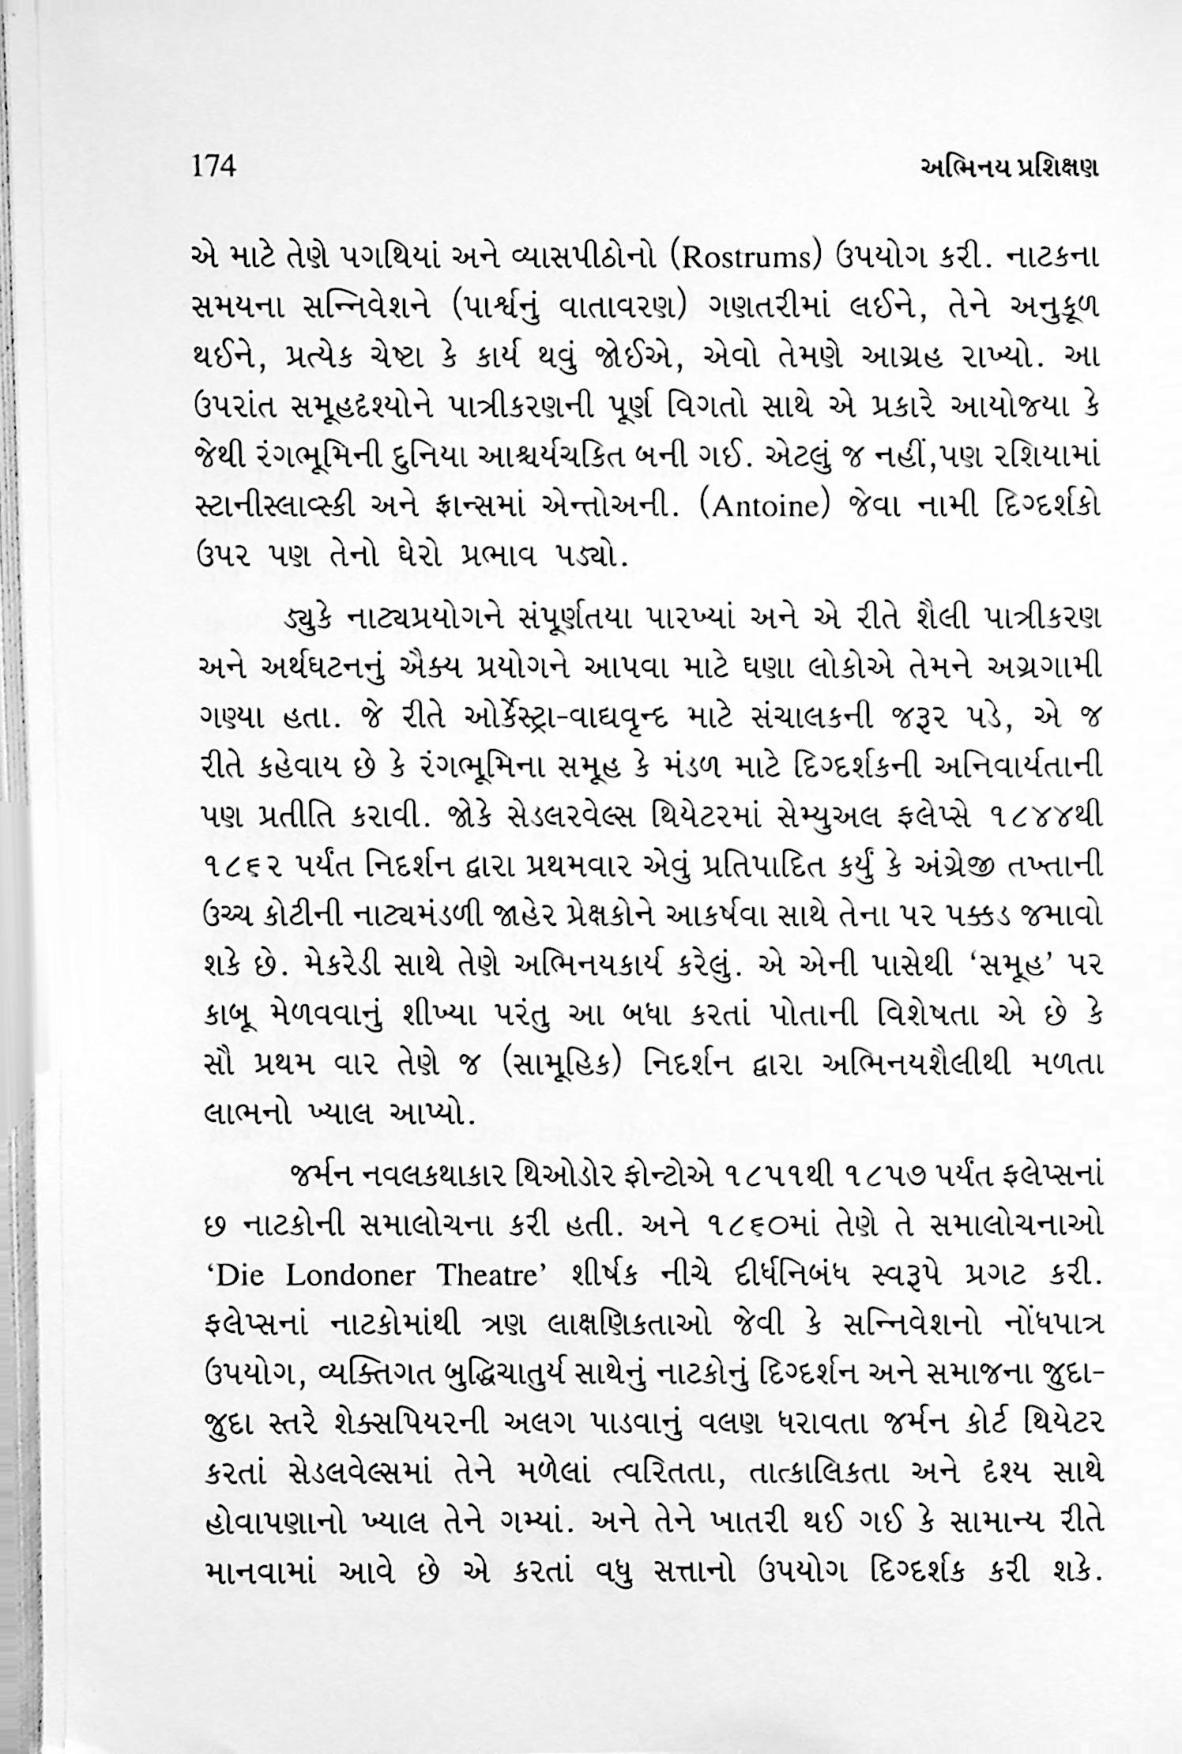 174 અભિનય પ્રશિક્ષણ
એ માટે તેણે પગથિયાં અને વ્યાસપીઠોનો (Rostrums) ઉપયોગ કરી. નાટકના
સમયના સન્નિવેશને (પાર્શ્વનું વાતાવરણ) ગણતરીમાં લઈને, તેને અનુકૂળ
થઈને, પ્રત્યેક ચેષ્ટા કે કાર્ય થવું જોઈએ, એવો તેમણે આગ્રહ રાખ્યો. આ
ઉપરાંત સમૂહદૃશ્યોને પાત્રીકરણની પૂર્ણ વિગતો સાથે એ પ્રકારે આયોજયા કે
જેથી રંગભૂમિની દુનિયા આશ્ચર્યચકિત બની ગઈ. એટલું જ નહીં,પણ રશિયામાં
સ્ટાનીસ્લાવ્સ્કી અને ફ્રાન્સમાં એન્તોઅની. (Antoine) જેવા નામી દિગ્દર્શકો
ઉપર પણ તેનો ઘેરો પ્રભાવ પડ્યો.
ડ્યુકે નાટ્યપ્રયોગને સંપૂર્ણતયા પારખ્યાં અને એ રીતે શૈલી પાત્રીકરણ
અને અર્થઘટનનું ઐક્ય પ્રયોગને આપવા માટે ઘણા લોકોએ તેમને અગ્રગામી
ગણ્યા હતા. જે રીતે ઓર્કેસ્ટ્રા-વાદ્યવૃન્દ માટે સંચાલકની જરૂર પડે, એ જ
રીતે કહેવાય છે કે રંગભૂમિના સમૂહ કે મંડળ માટે દિગ્દર્શકની અનિવાર્યતાની
પણ પ્રતીતિ કરાવી. જોકે સેડલરવેલ્સ થિયેટરમાં સેમ્યુઅલ ફલેપ્સે ૧૮૪૪થી
૧૮૬૨ પર્યંત નિદર્શન દ્વારા પ્રથમવાર એવું પ્રતિપાદિત કર્યું કે અંગ્રેજી તખ્તાની
ઉચ્ચ કોટીની નાટ્યમંડળી જાહેર પ્રેક્ષકોને આકર્ષવા સાથે તેના પર પક્કડ જમાવો
શકે છે. મેકરેડી સાથે તેણે અભિનયકાર્ય કરેલું. એ એની પાસેથી ‘સમૂહ’ પર
કાબૂ મેળવવાનું શીખ્યા પરંતુ આ બધા કરતાં પોતાની વિશેષતા એ છે કે
સૌ પ્રથમ વાર તેણે જ (સામૂહિક) નિદર્શન દ્વારા અભિનયશૈલીથી મળતા
લાભનો ખ્યાલ આપ્યો.
જર્મન નવલકથાકાર થિઓડોર ફોન્ટોએ ૧૮૫૧થી ૧૮૫૭ પર્યંત ફલેપ્સનાં
છ નાટકોની સમાલોચના કરી હતી. અને ૧૮૬૦માં તેણે તે સમાલોચનાઓ
‘Die Londoner Theatre’ શીર્ષક નીચે દીર્ધનિબંધ સ્વરૂપે પ્રગટ કરી.
ફલેપ્સનાં નાટકોમાંથી ત્રણ લાક્ષણિકતાઓ જેવી કે સન્નિવેશનો નોંધપાત્ર
ઉપયોગ, વ્યક્તિગત બુદ્ધિચાતુર્ય સાથેનું નાટકોનું દિગ્દર્શન અને સમાજના જુદા-
જુદા સ્તરે શેક્સપિયરની અલગ પાડવાનું વલણ ધરાવતા જર્મન કોર્ટ થિયેટર
કરતાં સેડલવેલ્સમાં તેને મળેલાં ત્વરિતતા, તાત્કાલિકતા અને દૃશ્ય સાથે
હોવાપણાનો ખ્યાલ તેને ગમ્યાં. અને તેને ખાતરી થઈ ગઈ કે સામાન્ય રીતે
માનવામાં આવે છે એ કરતાં વધુ સત્તાનો ઉપયોગ દિગ્દર્શક કરી શકે.